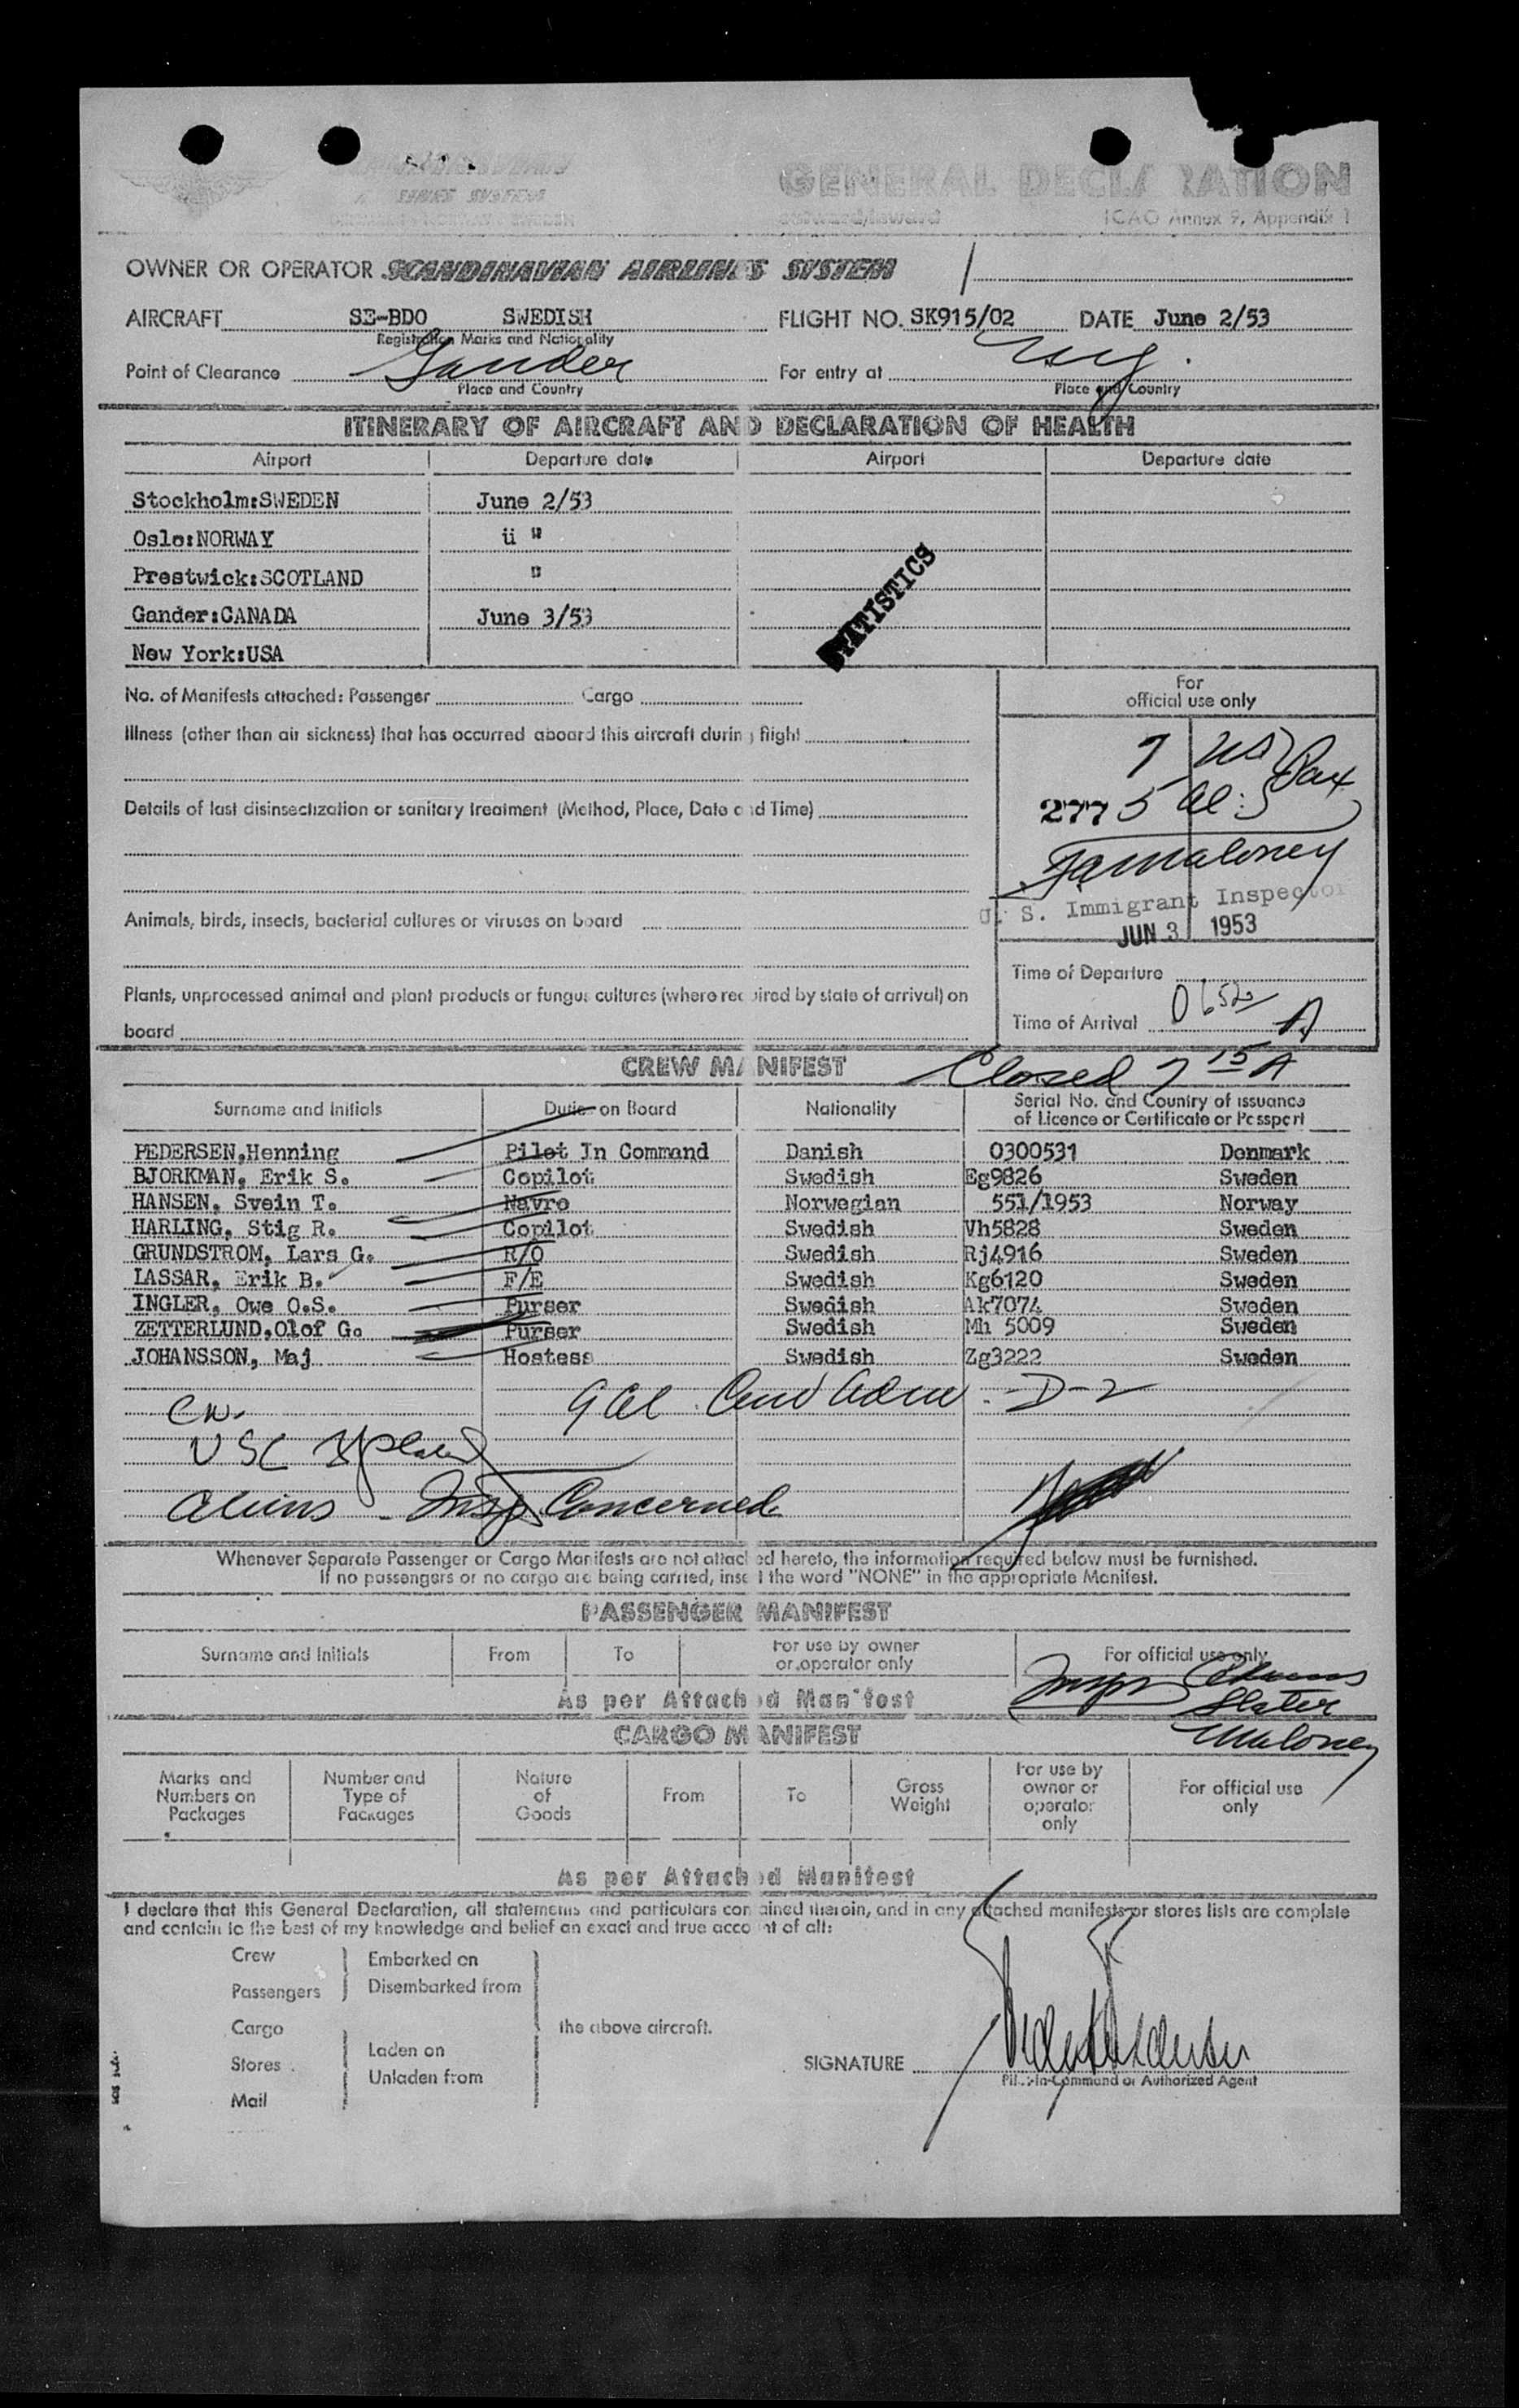 GENERAL DECLARATION
ICAO Annex 9, Appendix 1
OWNER OR OPERATOR SCANDINAVIAN AIRLINES SYSTEM
AIRCRAFT SE-BDO SWEDISH FLIGHT NO. SK915/02 DATE June 2/53
Registration Marks and Nationality
Point of Clearance Gander For entry at
Place and Country Place and Country
ITINERARY OF AIRCRAFT AND DECLARATION OF HEALTH
Airport Departure date Airport Departure date
Stockholm:SWEDEN June 2/53
Oslo:NORWAY ü "
Prestwick:SCOTLAND "
Gander:CANADA June 3/53
New York:USA
STATISTICS
No. of Manifests attached: Passenger Cargo
For
official use only
Illness (other than air sickness) that has occurred aboard this aircraft during flight
7 US
Pax
277 5 al:
Details of last disinsectization or sanitary treatment (Method, Place, Date and Time)
Maloney
U. S. Immigrant Inspector
JUN 3 1953
Animals, birds, insects, bacterial cultures or viruses on board
Time of Departure
Plants, unprocessed animal and plant products or fungus cultures (where required by state of arrival) on
board
Time of Arrival 0652 A
CREW MANIFEST Closed 7 15 A
Surname and Initials Duties on Board Nationality Serial No. and Country of issuance
of Licence or Certificate or Passport
PEDERSEN,Henning Pilot In Command Danish 0300531 Denmark
BJORKMAN, Erik S. Copilot Swedish Eg9826 Sweden
HANSEN, Svein T. Navro Norwegian 551/1953 Norway
HARLING, Stig R. Copilot Swedish Vh5828 Sweden
GRUNDSTROM, Lars G. R/O Swedish Rj4916 Sweden
LASSAR, Erik B. F/E Swedish Kg6120 Sweden
INGLER, Owe O.S. Purser Swedish Ak7074 Sweden
ZETTERLUND,Olof G. Purser Swedish Mh 5009 Sweden
JOHANSSON, Maj Hostess Swedish Zg3222 Sweden
9 al D-2
USC
aliens - Insp Concerned
Whenever Separate Passenger or Cargo Manifests are not attached hereto, the information required below must be furnished.
If no passengers or no cargo are being carried, insert the word "NONE" in the appropriate Manifest.
PASSENGER MANIFEST
Surname and Initials From To For use by owner
or operator only For official use only
As per Attached Manifest
Slater
CARGO MANIFEST
Maloney
Marks and
Numbers on
Packages Number and
Type of
Packages Nature
of
Goods From To Gross
Weight For use by
owner or
operator
only For official use
only
As per Attached Manifest
I declare that this General Declaration, all statements and particulars contained therein, and in any attached manifests or stores lists are complete
and contain to the best of my knowledge and belief an exact and true account of all:
Crew Embarked on
Passengers Disembarked from
Cargo the above aircraft.
Stores Laden on
Unladen from
Mail
SIGNATURE
Pilot-In-Command or Authorized Agent